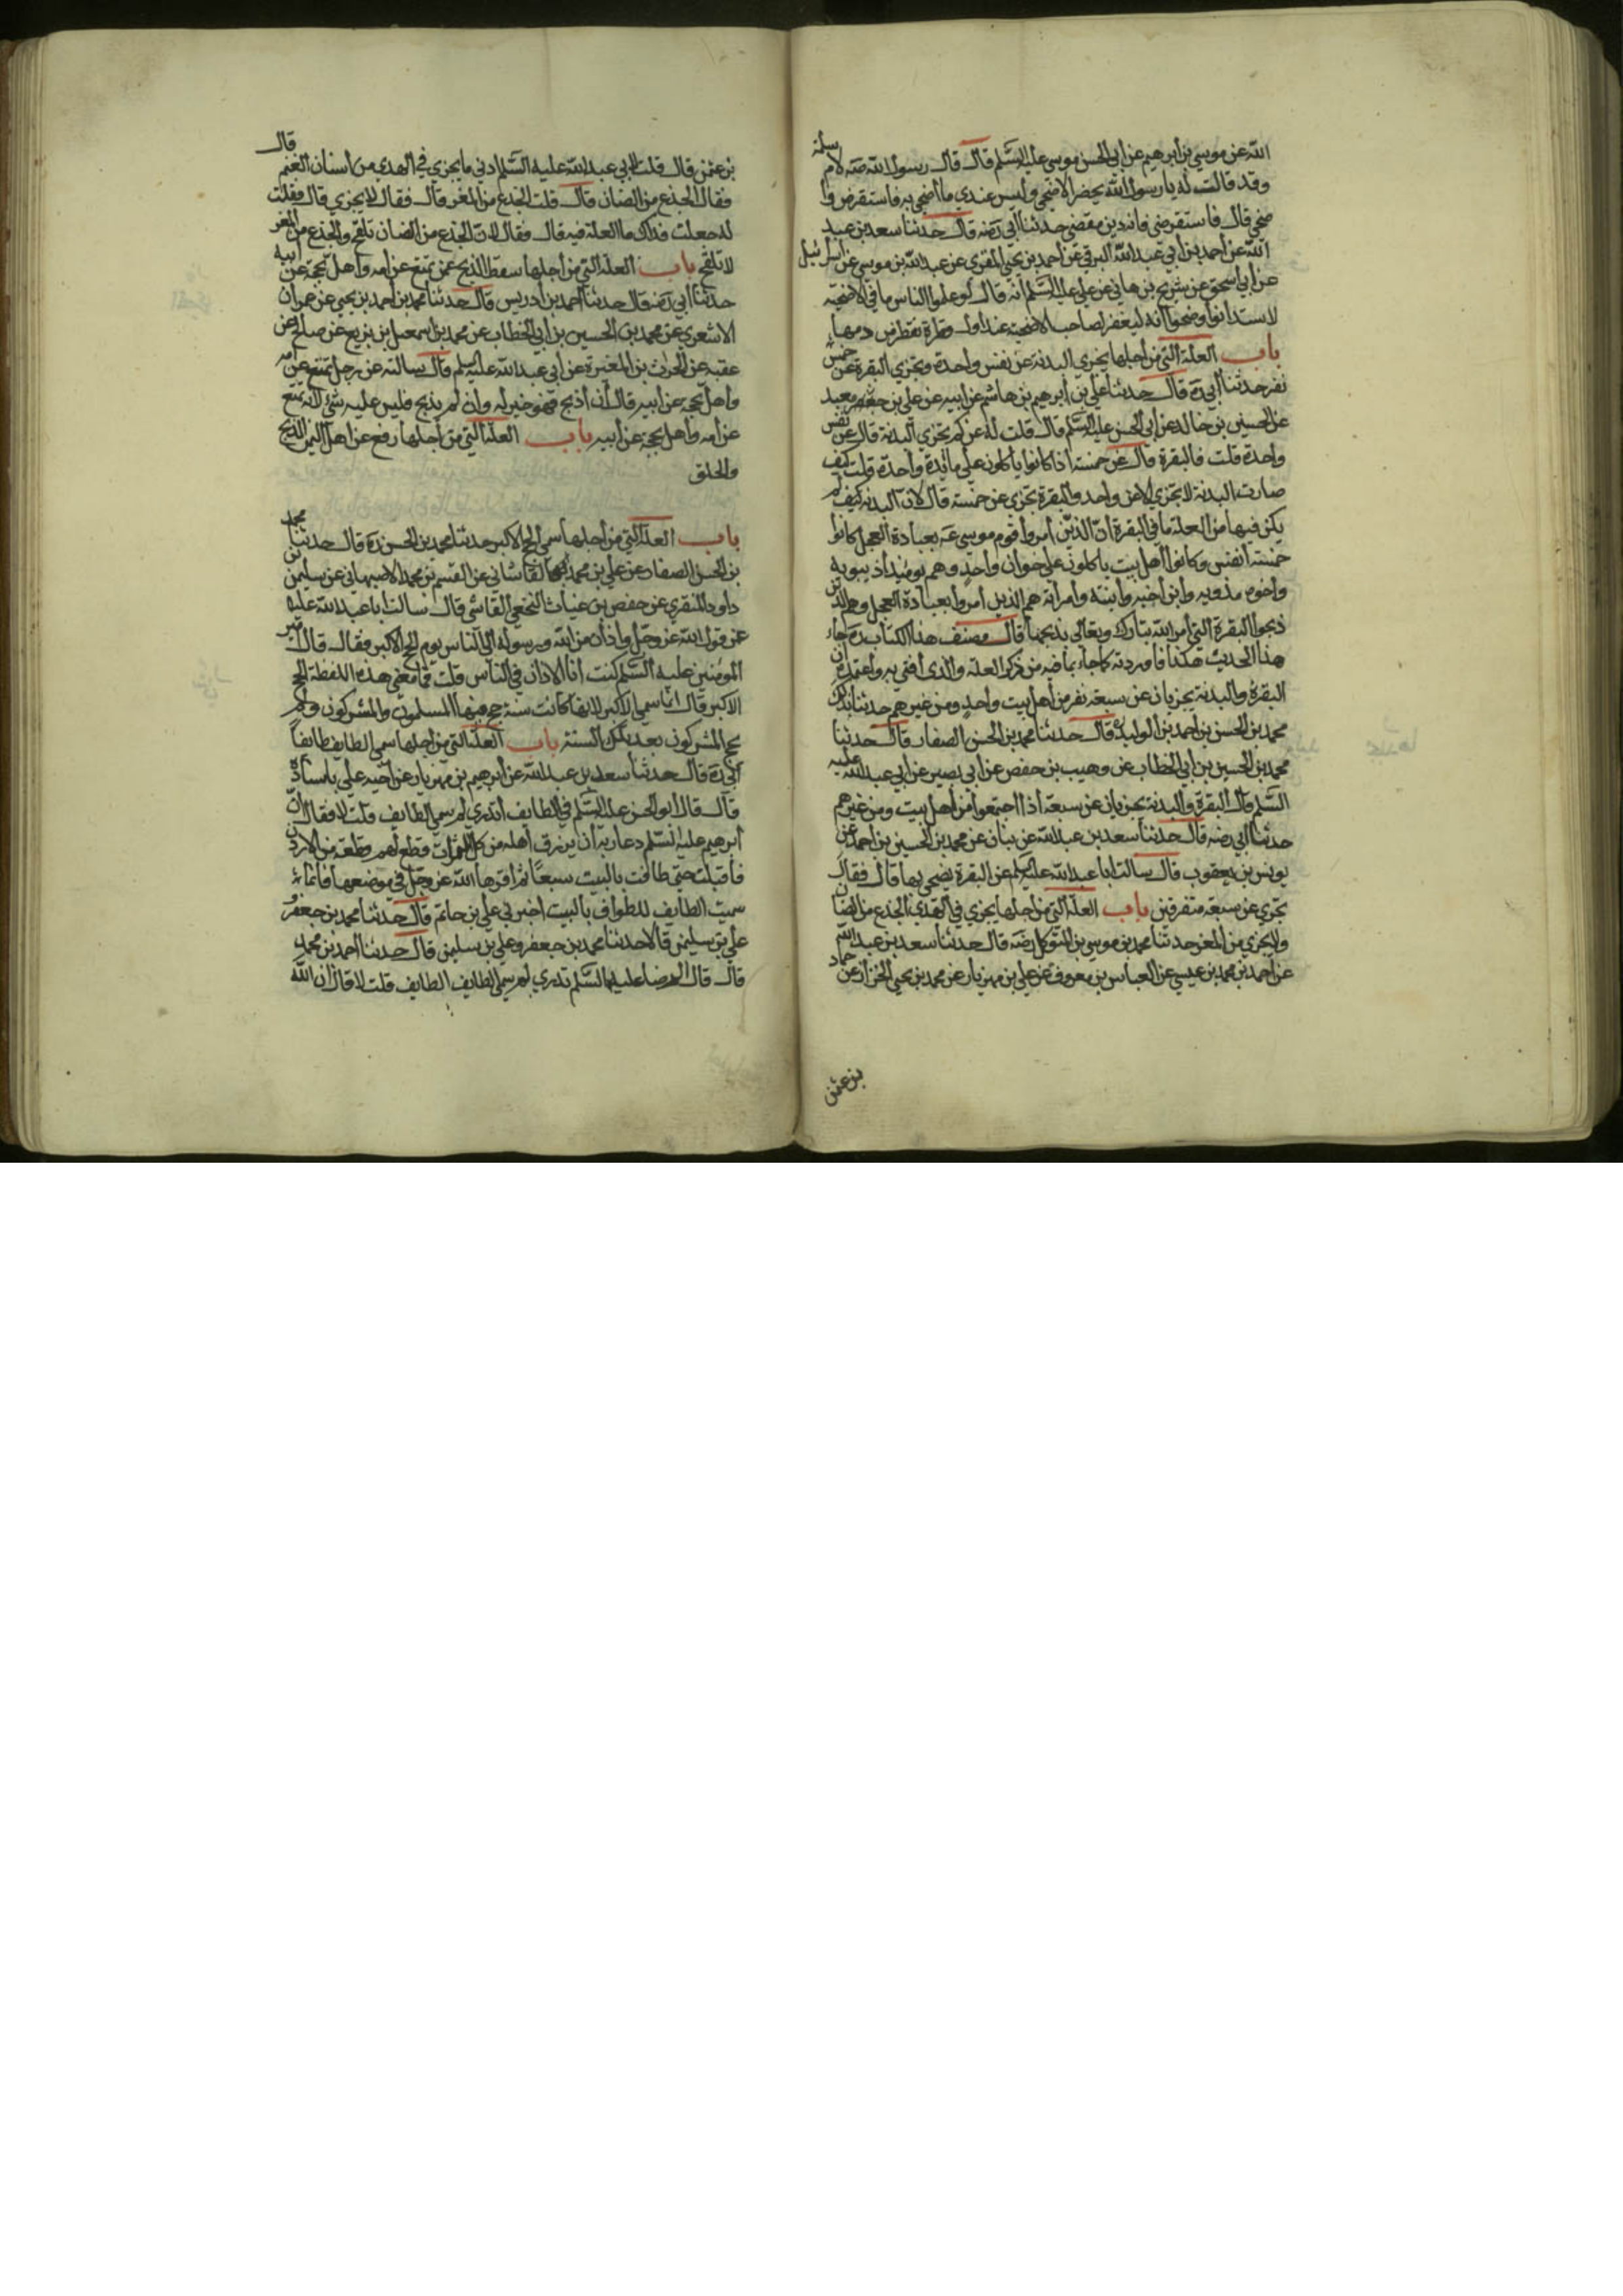 الله عن موسى بن ابرهيم عن ابى الحسن موسى عليه السلم قال قال رسول الله صلى لام سلمة
وقد قالت له يارسول الله يحضر الاضحى وليس عندي ما اضحي به فاستقرض وا
ضحي قال فاستقرضي فانه دين مقضي حدثنا ابي رضه قال حدثنا سعد بن عبد
الله عن احمد بن ابي عبد الله البرقي عن احمد بن يحيى المقري عن عبد الله بن موسى عن اسرائيل
عن ابي اسحق عن شريح بن هاني عن علي عليه السلم انه قال لو علموا الناس ما في الاضحية
لاستدانوا وضحوا انه ليغفر لصاحب الاضحية عند اول قطرة تقطر من دمها
باب العلة التي من اجلها يجزي البدنة عن نفس واحدة وتجزي البقرة عن خمسة
نفر حدثنا ابي ره قال حدثنا علي بن ابرهيم بن هاشم عن ابيه عن علي بن معبد
عن الحسين بن خالد عن ابى الحسن عليه السلم قال قلت له عن كم تجزي البدنة قال عن نفس
واحدة قلت فالبقرة قال عن خمسة اذا كانوا ياكلون على مائدة واحدة قلت كيف
صارت البدنة لا تجزي الا عن واحد والبقرة تجزي عن خمسة قال لان البدنة كيف لم
يكن فيها من العلة ما في البقرة ان الذين امروا قوم موسى عه بعبادة العجل كانوا
خمسة انفس وكانوا اهل بيت ياكلون على خوان واحد وهم يومئذ اذيبويه
واخوه مذويه وابن اخيه وابنته وامراته هم الذين امروا بعبادة العجل وهم الذين
ذبحوا البقرة التي امر الله تبارك وتعالى بذبحها قال مصنف هذا الكتاب ره جاء
هذا الحديث هكذا فاوردته كما جاء بما فيه من ذكر العلة والذي افتي به واعتمده ان
البقرة والبدنة يجزيان عن سبعة نفر من اهل بيت واحد ومن غيرهم حدثنا بذلك
محمد بن الحسن بن احمد بن الوليد ره قال حدثنا محمد بن الحسن الصفار قال حدثنا
محمد بن الحسين بن ابي الخطاب عن وهيب بن حفص عن ابي بصير عن ابي عبد الله عليه
السلم قال البقرة والبدنة يجزيان عن سبعة اذا اجتمعوا من اهل بيت ومن غيرهم
حدثنا ابي رضه قال حدثنا سعد بن عبد الله عن بنان عن محمد بن الحسين بن احمد عن
يونس بن يعقوب قال سالت ابا عبد الله عليه السلم عن البقرة يضحى بها قال فقال
يجزي عن سبعة متفرقين باب العلة التي من اجلها يجزي في الهدي الجذع من الضان
ولا يجزي من المعز حدثنا محمد بن موسى بن المتوكل رضه قال حدثنا سعد بن عبد الله
عن احمد بن محمد بن عيسى عن العباس بن معروف عن علي بن مهزيار عن محمد بن يحيى الخزاز عن حماد
بن عثمن
بن عثمن قال قلت لابي عبد الله عليه السلم ادنى ما يجزي في الهدي من اسنان الغنم قال
فقال الجذع من الضان قال قلت الجذع من المعز قال فقال لا يجزي قال فقلت
له جعلت فداك ما العلة فيه قال فقال لان الجذع من الضان تلقح والجذع من المعز
لا تلقح باب العلة التي من اجلها سقط الذبح عمن تمتع عن امه واهل بحجة عن ابيه
حدثنا ابي رضه قال حدثنا احمد بن ادريس قال حدثنا محمد بن احمد بن يحيى عن عمران
الاشعري عن محمد بن الحسين بن ابي الخطاب عن محمد بن اسمعيل بن بزيع عن صالح بن
عقبه عن الحرث بن المغيرة عن ابي عبد الله عليه السلم قال سالته عن رجل تمتع عن امه
واهل بحجة عن ابيه قال ان ذبح فهو خير له وان لم يذبح فليس عليه شئ لانه تمتع
عن امه واهل بحجة عن ابيه باب العلة التي من اجلها رفع عن اهل اليمن الذبح
والحلق
باب العلة التي من اجلها سمي الحج الاكبر حدثنا محمد بن الحسن ره قال حدثنا محمد
بن الحسن الصفار عن علي بن محمد القاشاني عن القسم بن محمد الاصبهاني عن سليمن بن
داود المنقري عن حفص بن غياث النخعي القاضي قال سالت ابا عبد الله عليه
عن قول الله عز وجل واذان من الله ورسوله الى الناس يوم الحج الاكبر فقال قال امير
المومنين عليه السلم كنت انا الاذان في الناس قلت فما معنى هذه اللفظة الحج
الاكبر قال انما سمي الاكبر لانها كانت سنة حج فيها المسلمون والمشركون ولم
يحج المشركون بعد تلك السنة باب العلة التي من اجلها سمي الطايف طايفا
ابي ره قال حدثنا سعد بن عبد الله عن ابرهيم بن مهزيار عن اخيه علي باسناده
قال قال ابو الحسن عليه السلم في الطايف اتدري لم سمي الطايف قلت لا فقال ان
ابرهيم عليه السلم دعا ربه ان يرزق اهله من كل الثمرات فقطع لهم قطعة من الاردن
فاقبلت حتى طافت بالبيت سبعا ثم اقرها الله عز وجل في موضعها فانما
سميت الطايف للطواف بالبيت اخبرني علي بن حاتم قال حدثنا محمد بن جعفر و
علي بن سليمن قالا حدثنا محمد بن جعفر وعلي بن سليمن قال حدثنا احمد بن محمد
قال قال الرضا عليه السلم تدري لم سمي الطايف الطايف قلت لا قال ان الله